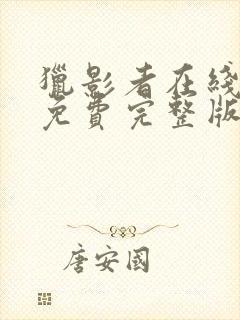 獵影者在綫
免費完整版
唐安國